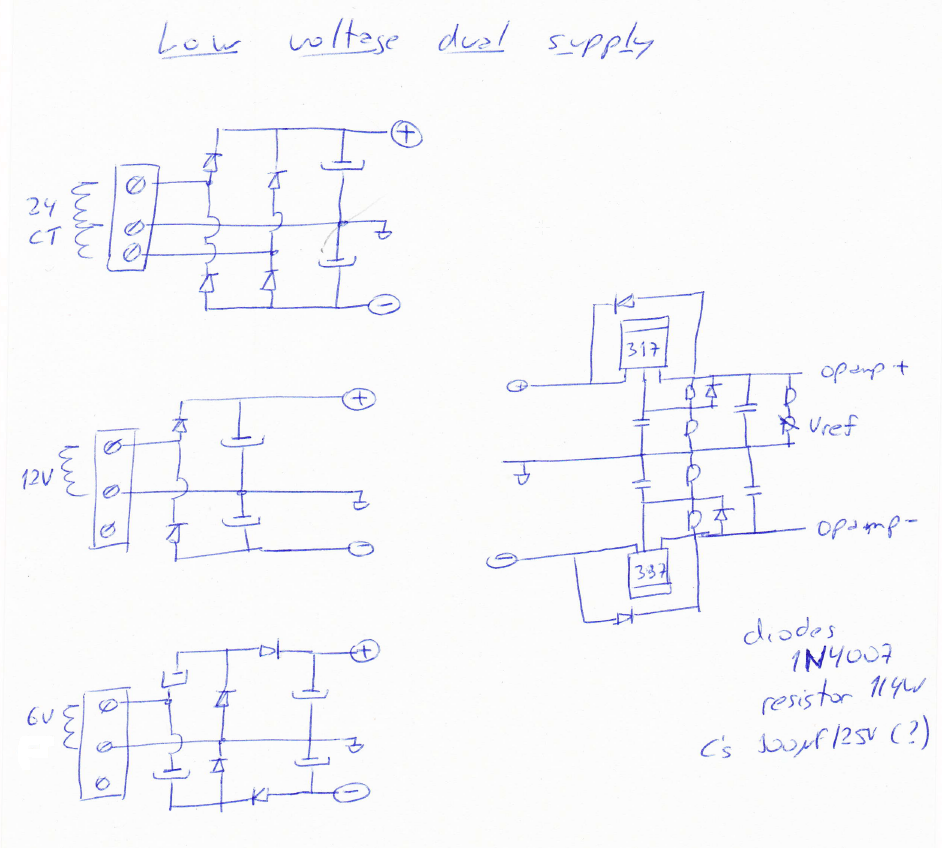 Low voltage dual supply
24
CT
+
-
12V
+
-
6V
+
-
317
+
opamp +
Vref
-
337
opamp -
diodes
1N4007
resistor 1/4W
C's 100µF/25V (?)